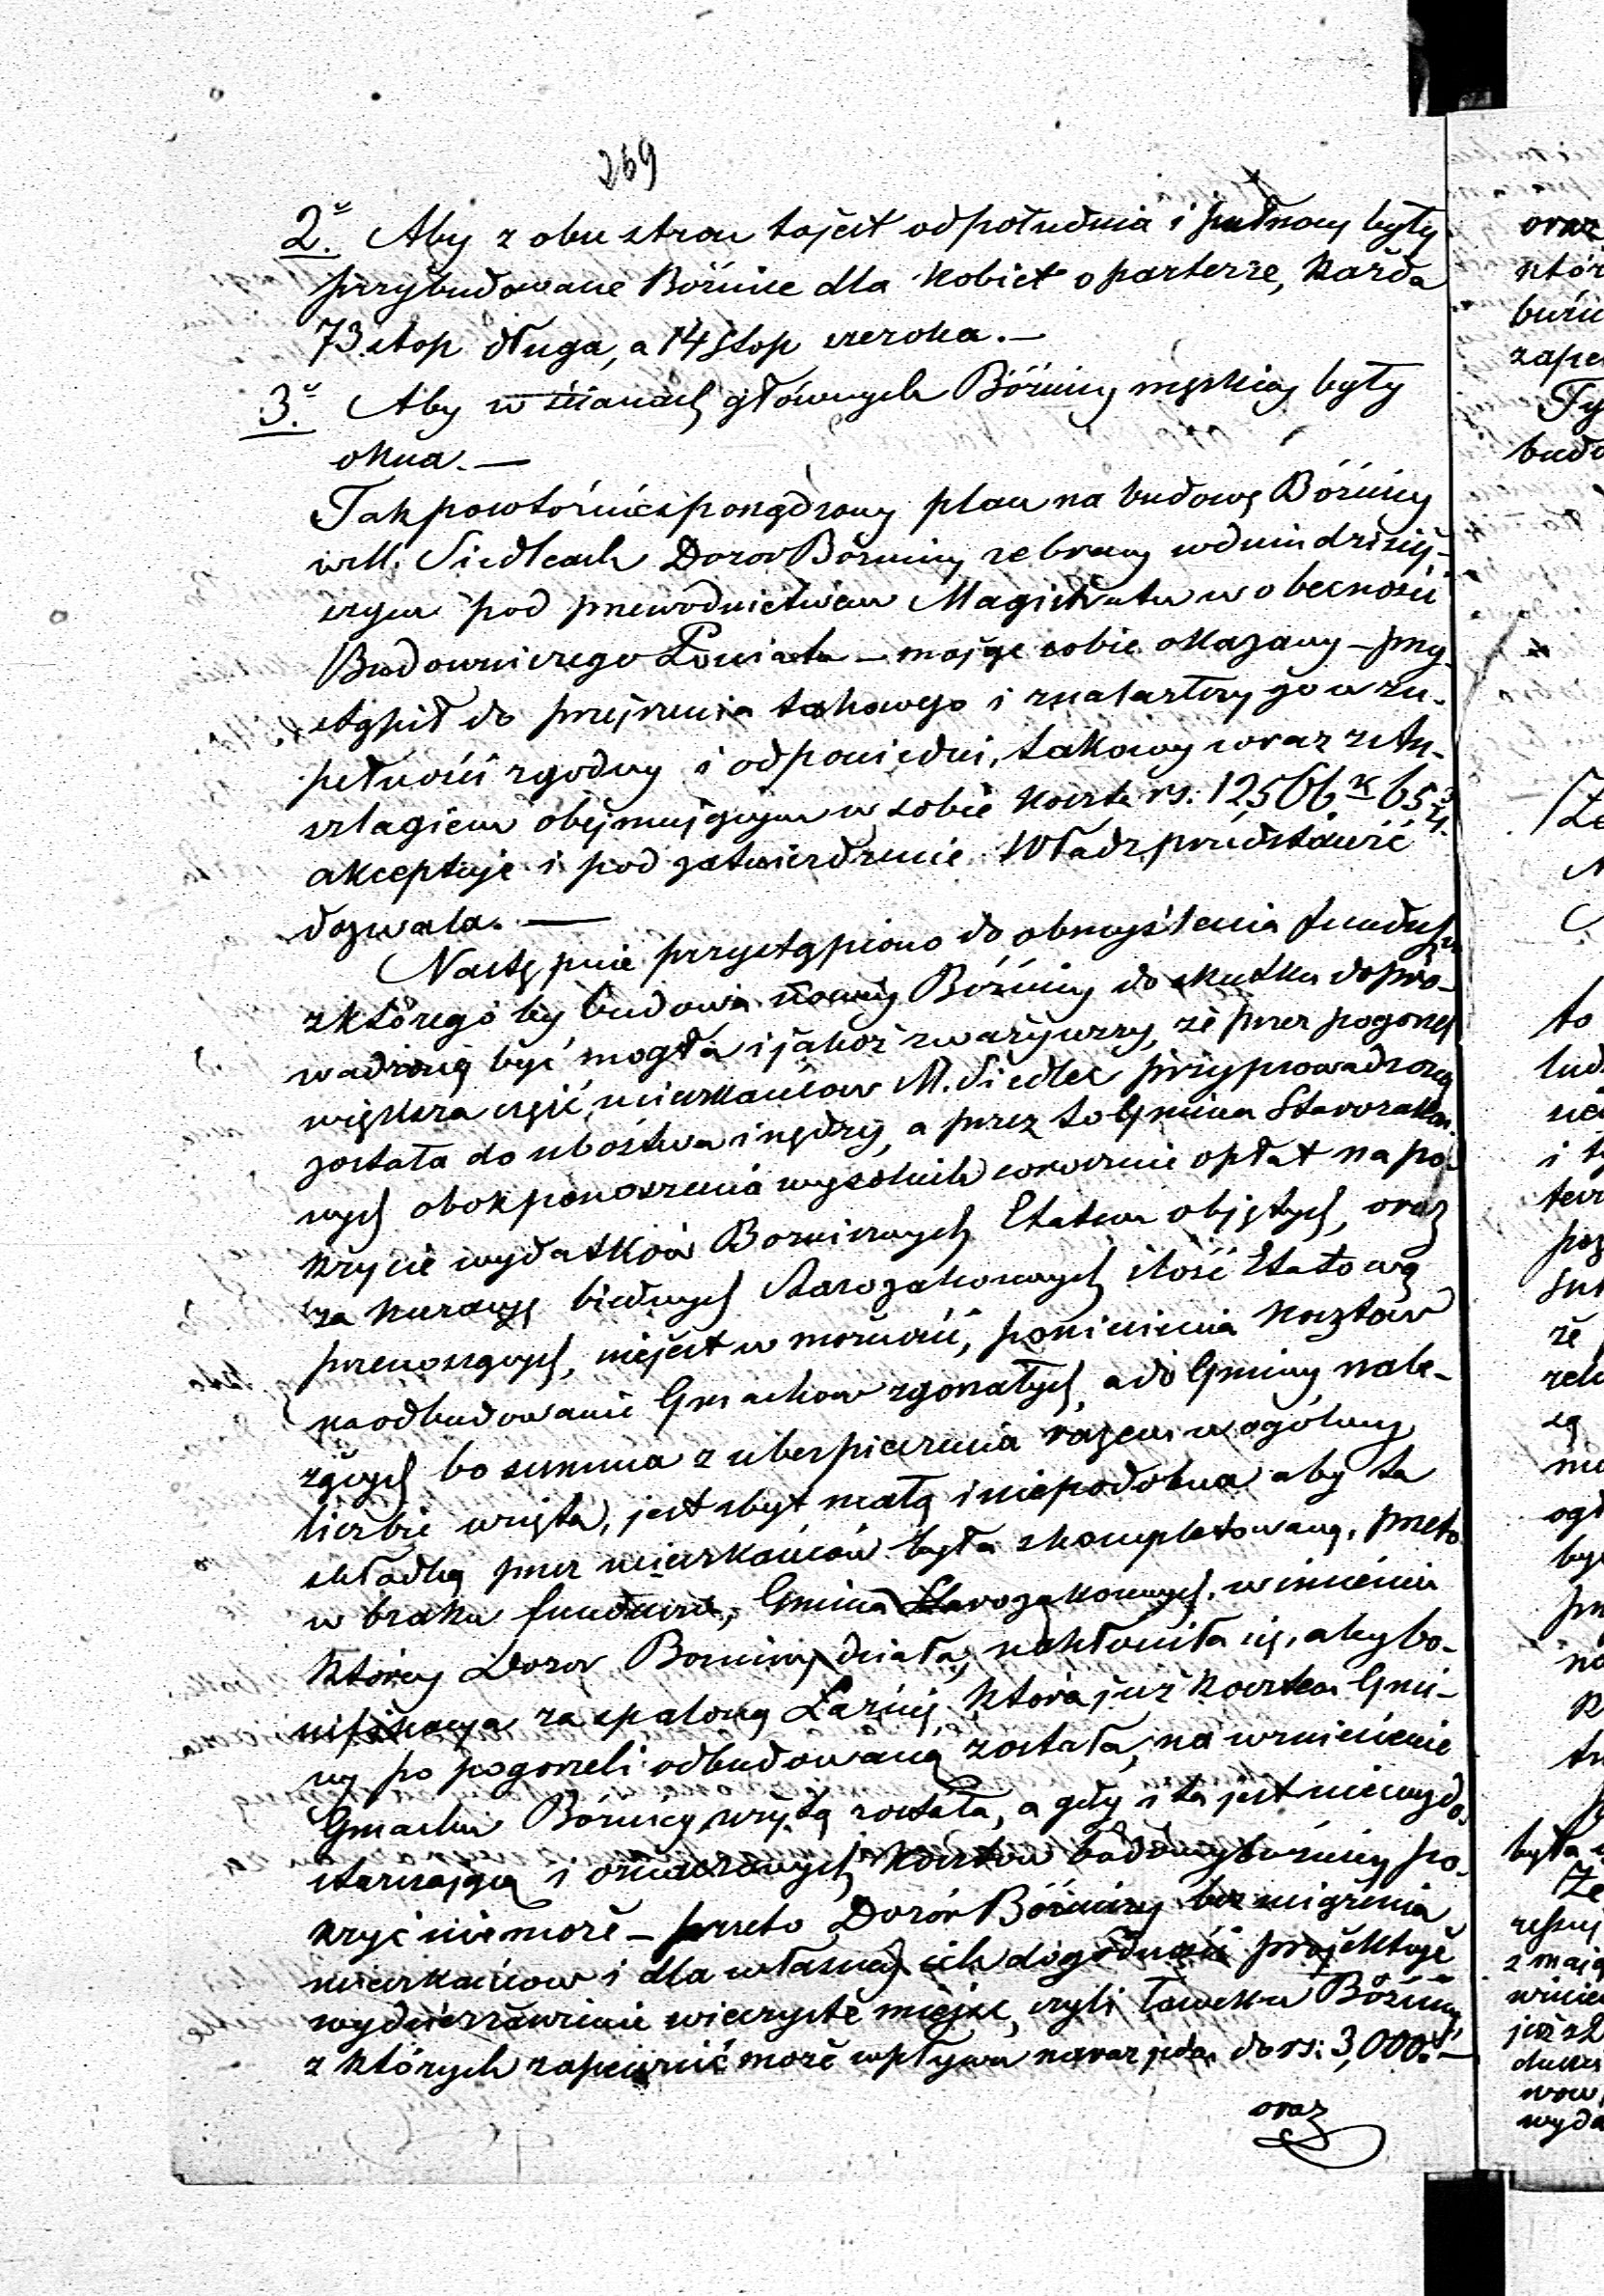 269
2. Aby z obu stron tojest od południa i północy były
przybudowane Bóźnice dla Kobiet o parterze, Każda
73 stop długa, a 14 Stop szeroka. —
3. Aby w ścianach głównych Bóźnicy męskiej były
okna. —
Tak powtórnie sporządzony plan na budowę Bóźnicy
w M. Siedlcach Dozor Bóżniczy zebrany w dniu dzisiej-
szym pod przewodnictwem Magistratu w obecności
Budowniczego Powiatu — mając sobie okazany — przy-
stąpił do przejrzenia takowego i znalazłszy go w zu-
pełności zgodny i odpowiedni, takowy wraz z An-
szlagiem obejmującym w sobie Koszta rs: 12506 k 65
akceptuje i pod zatwierdzenie Władz przedstawić
dozwala. —
Następnie przystąpiono do obmyślenia funduszu
z którego by budowa nowej Bóźnicy do skutku dopro-
wadzoną być mogła i jakoż zważywszy, że przez pogorzel
większa część mieszkańcow M. Siedlec przyprowadzoną
została do ubóstwa i nędzy, a przez to Gmina Starozakon-
nych obok ponoszenia wysokich corocznie opłat na po-
krycie wydatków Bozniczych Etatem objętych, oraz
za kuracyę biednych Starozakonnych ilość Etatową
przenoszących, niejest w możności, poniesienia Kosztów
na odbudowanie Gmachow zgorzałych, a do Gminy nale-
żących bo summa z ubezpieczenia razem w ogólnej
liczbie wzięta, jest zbyt małą i niepodobna aby ta
składką przez mieszkańców była skompletowaną, przeto
w braku funduszu, Gmina Starozakonnych, w imieniu
której Dozor Bozniczy działa, nakłoniła się, aby bo-
nifikacya za spaloną Łaźnię, która już kosztem Gmi-
ny po pogorzeli odbudowaną została, na wzniesienie
Gmachu Bóźnicy użytą została, a gdy i ta jest niewydo-
starczającą i oznaczonych Kosztów budowy bóźnicy po-
kryć niemoże — przeto Dozór Bóźniczy bez uciążenia
mieszkańcow i dla własnej ich dogodności projektuje
wydzierżawienie wieczyste miejsc, czyli ławek w Bóźnicy
z których zapewnić może wpływu na raz jeden do rs: 3,000. —
oraz
oraz
któr
buźn
zape
Ty
budo
to
lud
i ty
że
są
ogł
by
była
Ze
z mają
wydа